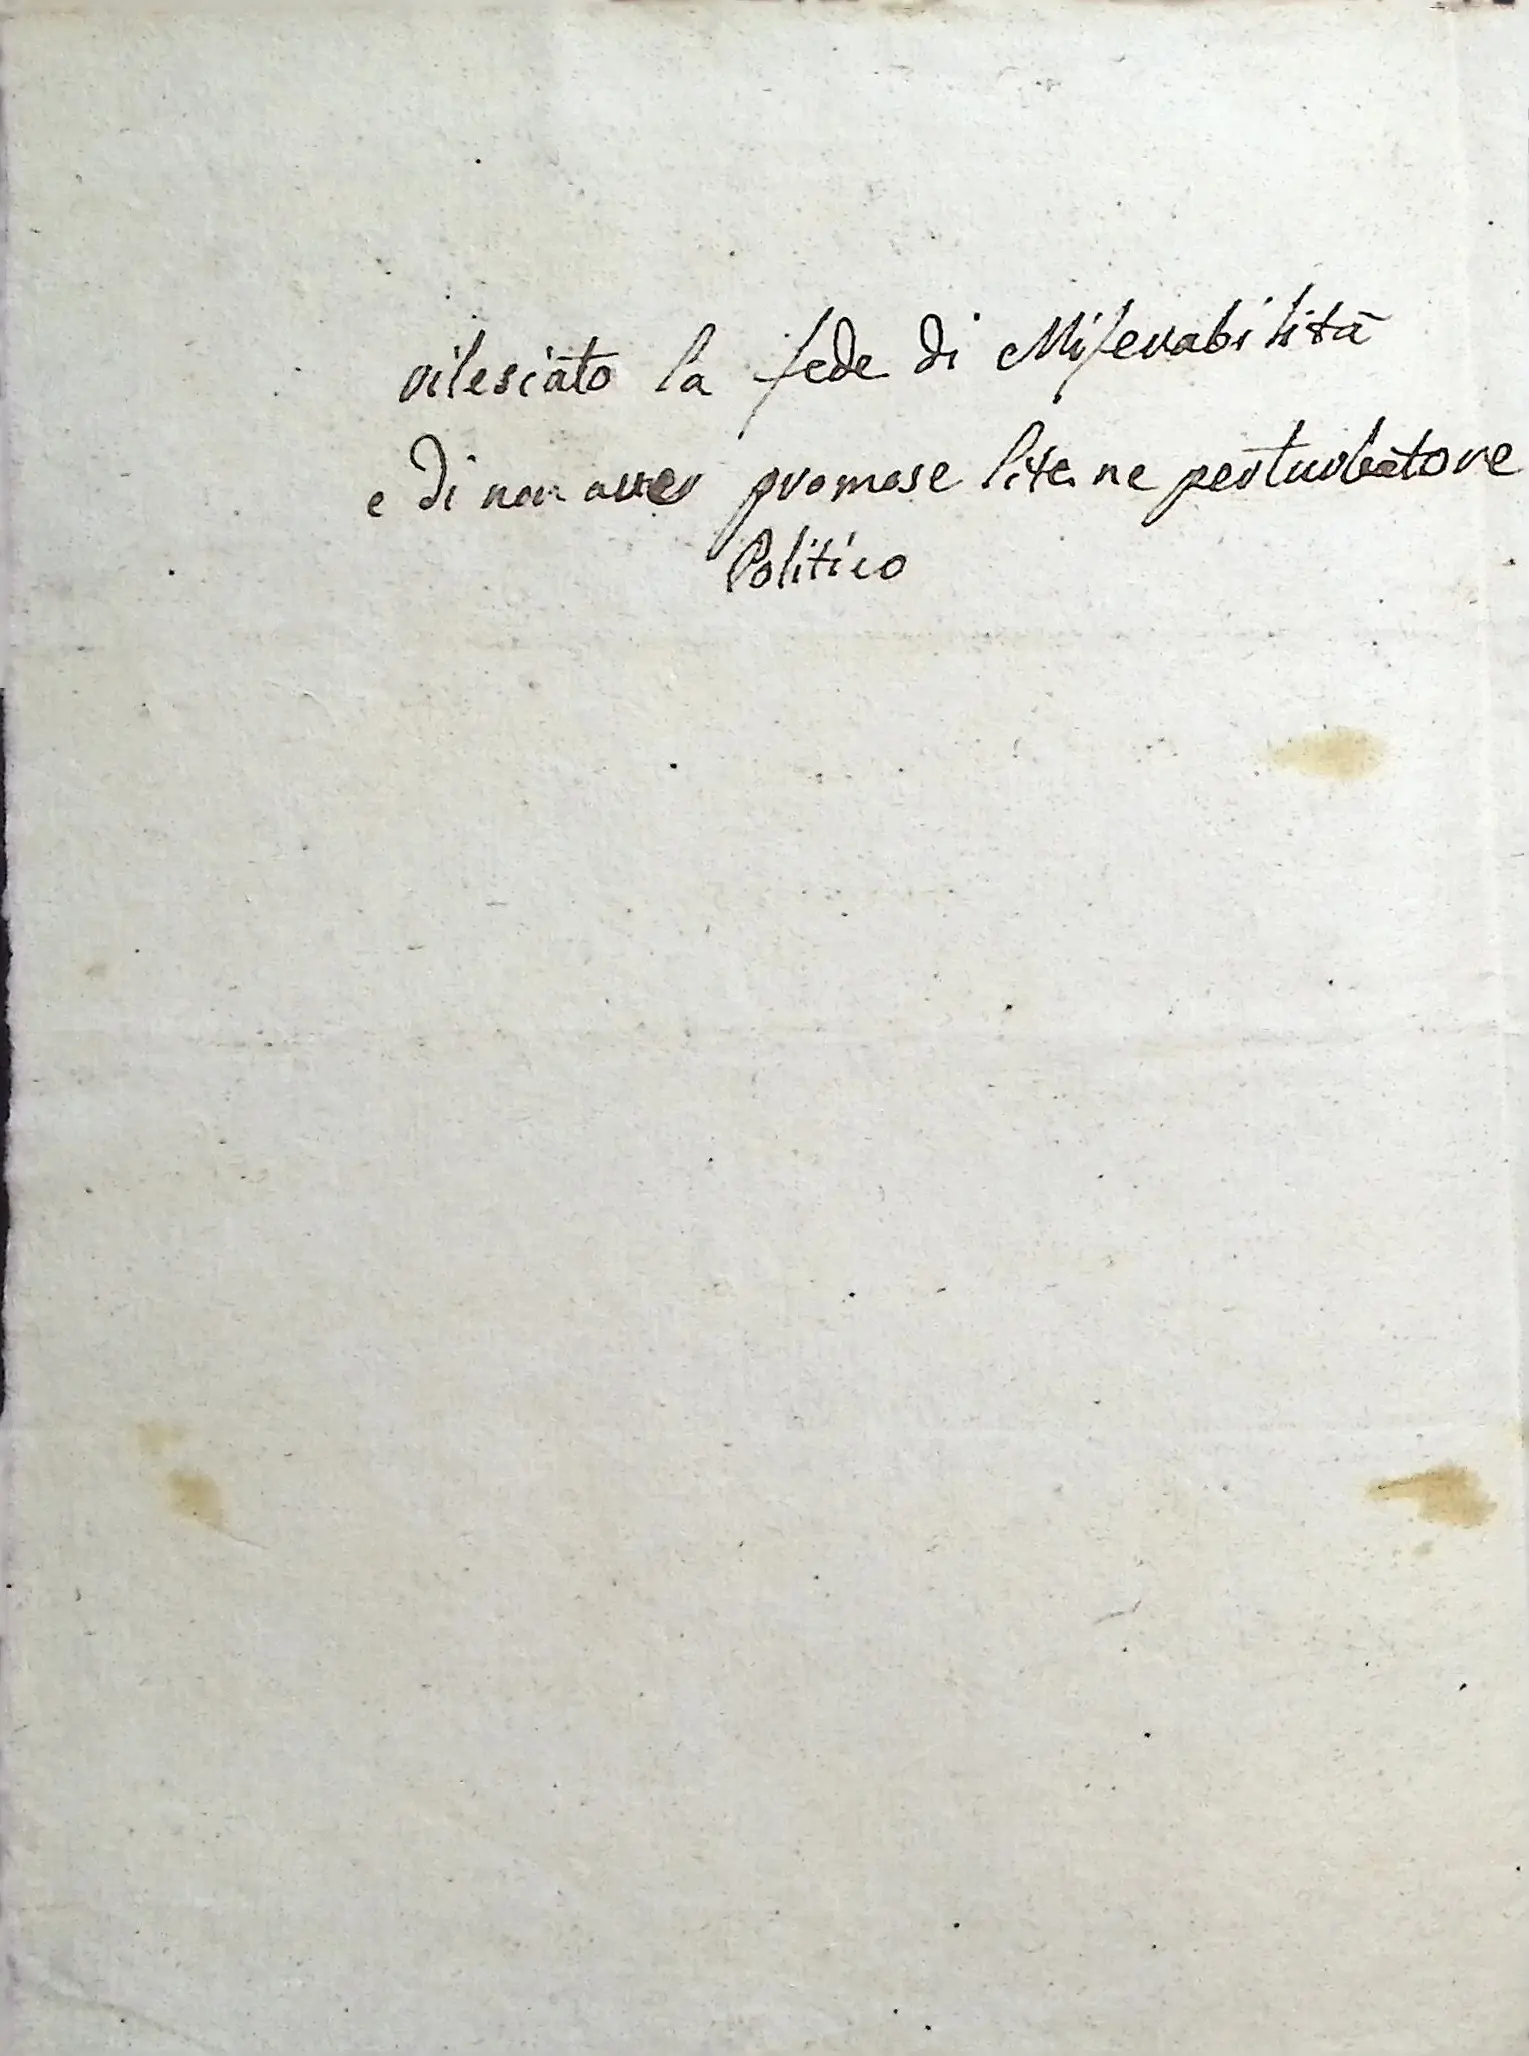 rilesciato la fede di Miserabilità
e di non aver promose lite ne perturbatore
Politico